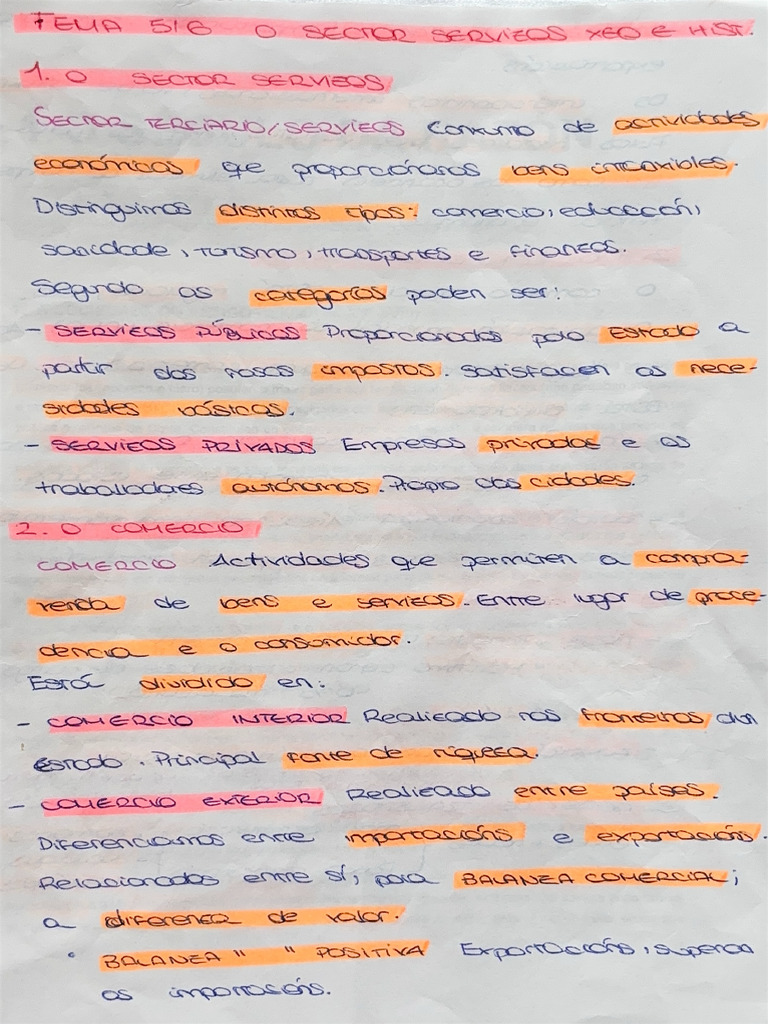 TEMA 5/6 O SECTOR SERVIZOS XEO E HIST.
1. O SECTOR SERVIZOS
SECTOR TERCIARIO/SERVIZOS Conxunto de actividades
económicas que proporciónanos bens intanxibles.
Distinguimos distintos tipos: comercio, educación,
sanidade, turismo, transportes e finanzas.
Segundo as categorías poden ser:
- SERVIZOS PÚBLICOS Proporcionados polo Estado a
partir dos nosos impostos. Satisfacen as nece-
sidades básicas.
- SERVIZOS PRIVADOS Empresas privadas e os
traballadores autónomos. Propio das cidades.
2. O COMERCIO
COMERCIO Actividades que permiten a compra-
venda de bens e servizos. Entre lugar de proce-
dencia e o consumidor.
Está dividido en:
- COMERCIO INTERIOR Realizado nas fronteiras dun
Estado. Principal fonte de riqueza.
- COMERCIO EXTERIOR Realizado entre países.
Diferenciamos entre importacións e exportacións.
Relacionados entre sí, pola BALANZA COMERCIAL;
a diferenza de valor.
• BALANZA " " POSITIVA Exportacións, supera
as importacións.